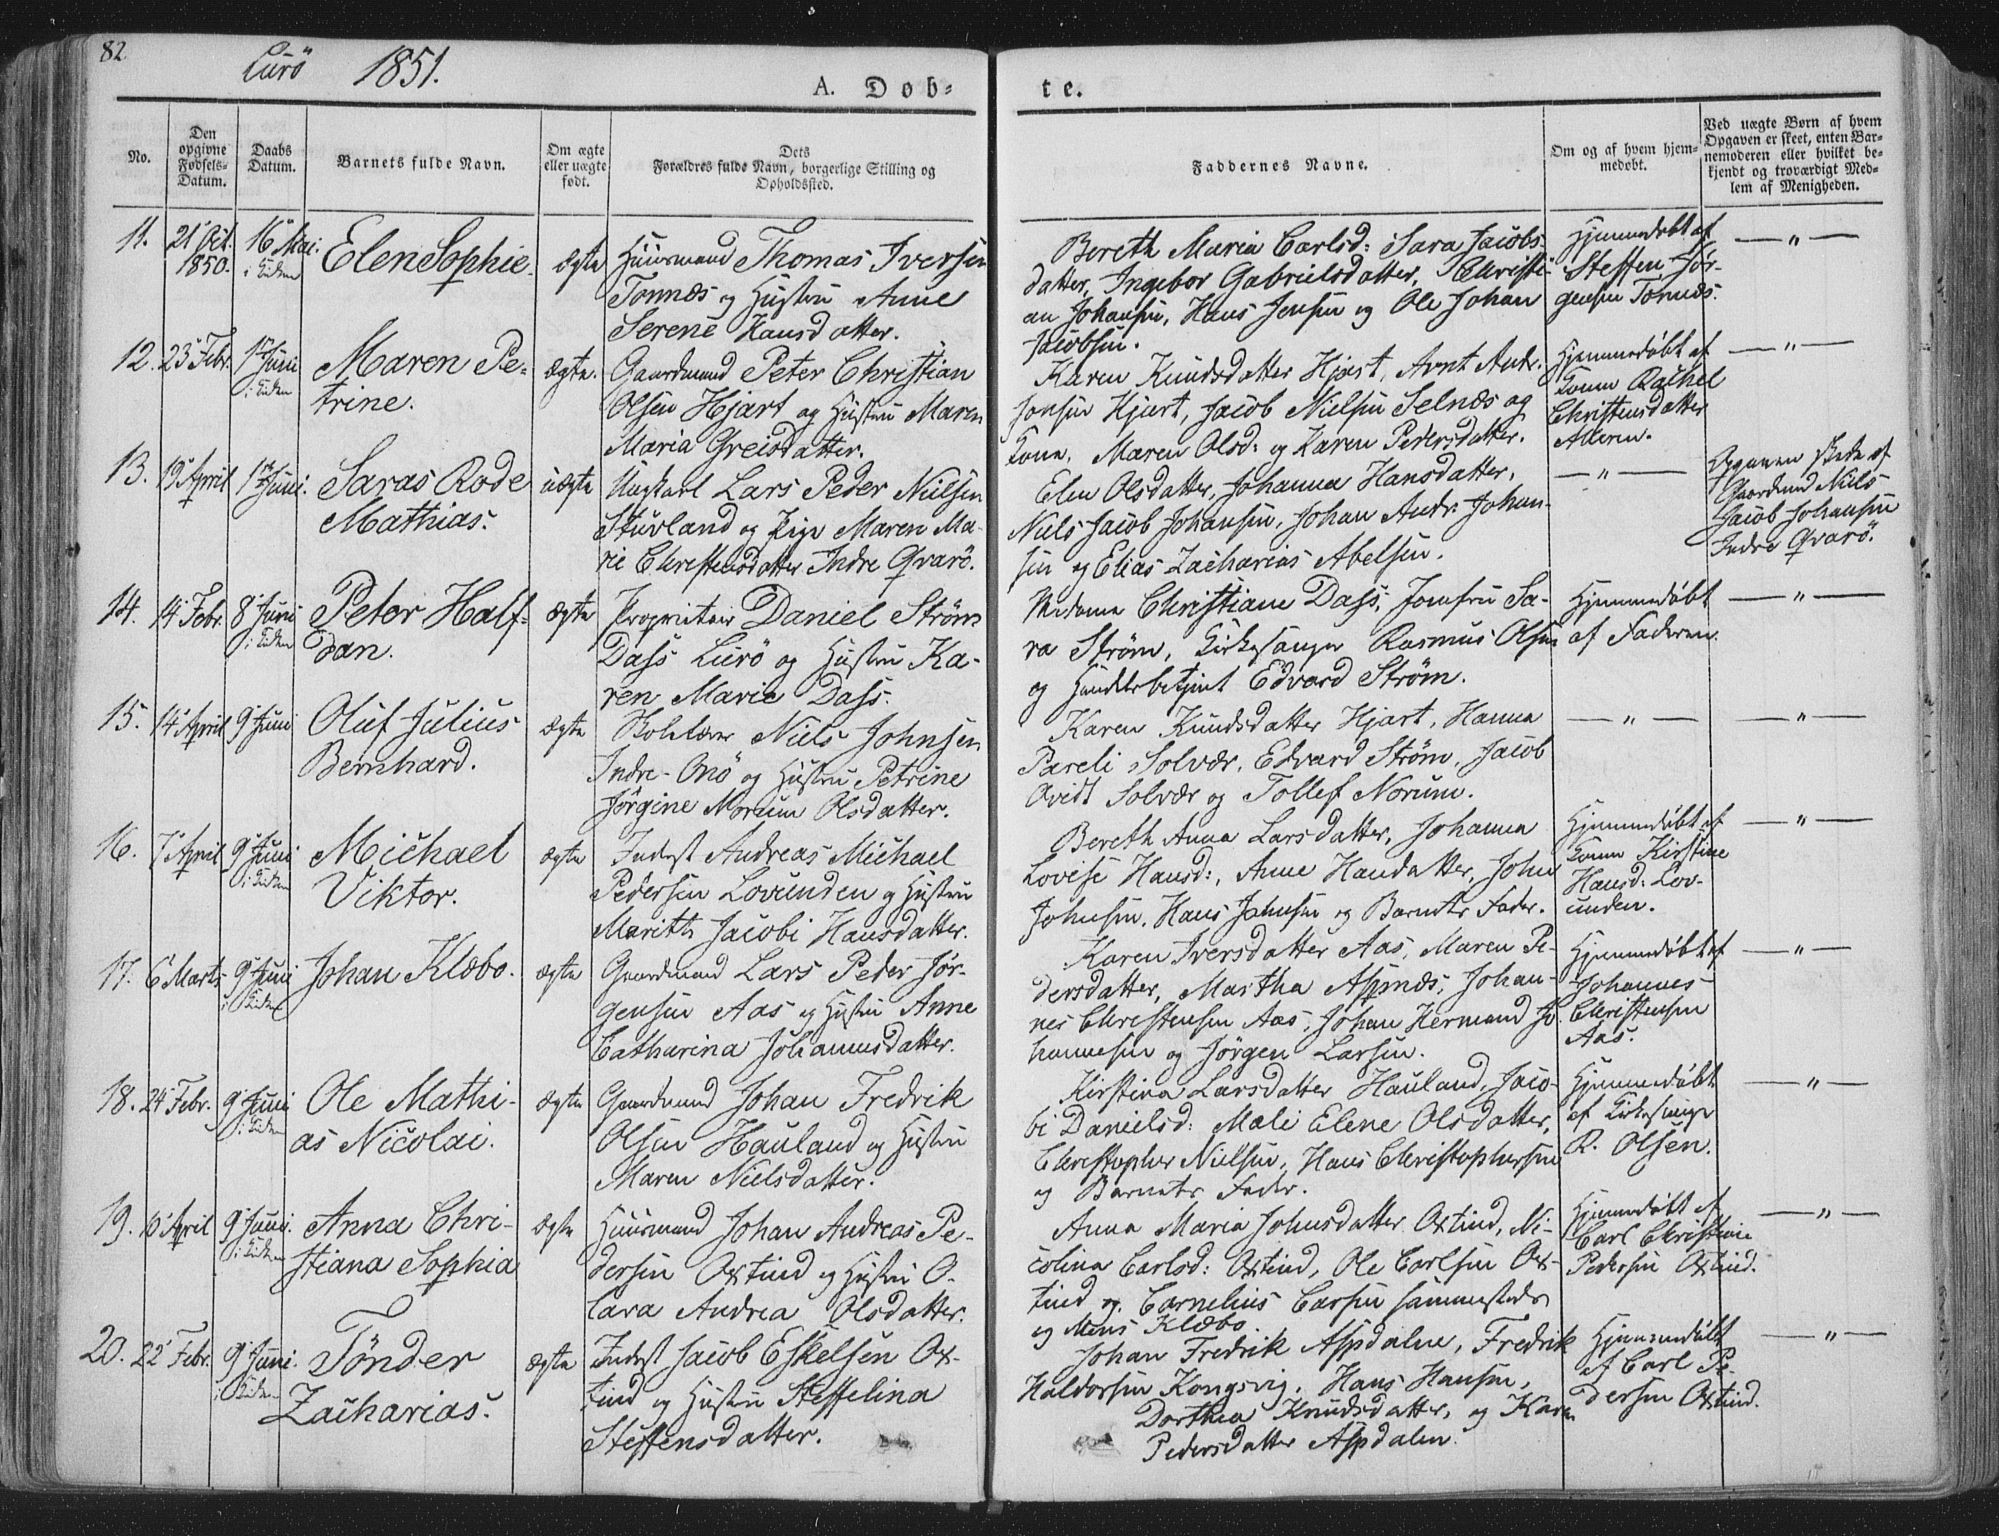 82.
Lurö 1851.
A. Døb-
te.
No.
Den
opgivne
Fødsels-
Datum.
Daabs
Datum.
Barnets fulde Navn.
Om ægte
eller uægte
født.
Dets
Forældres fulde Navn, borgerlige Stilling og
Opholdssted.
Faddernes Navne.
Om og af hvem hjem-
medøbt.
Ved uægte Børn af hvem
Opgaven er skeet, enten Bar-
nemoderen eller hvilket be-
kjendt og troværdigt Med-
lem af Menigheden.
11. 21 Oct. 1850. 16 Mai. i Kirken
Elen Sophie.
ægte
Huusmand Thomas Iversen
Tonnæs og Hustru Anne
Serene Hansdatter.
Bereth Maria Carlsd: Sara Jacobs-
datter, Ingebor Gabrielsdatter, Christi-
an Johansen, Hans Jensen og Ole Johan
Jacobsen.
Hjemmedøbt af
Steffen Jør-
gensen Tonnæs.
— " —
12. 23 Febr. 1 Juni i Kirken
Maren Pe-
trine.
ægte.
Gaardmand Peter Christian
Olsen Hjart og Hustru Maren
Maria Greisdatter.
Karen Knudsdatter Hjart, Arnt Andr.
Jonsen Hjart, Jacob Nielsen Selnæs og
Kone, Maren Olsd: og Karen Pedersdatter.
Hjemmedøbt af
Konen Rachel
Christensdatter
Alteren.
— " —
13. 19 April 1 Juni.
Saras Rode
Mathias.
uægte
Ungkarl Lars Peder Nielsen
Stuvland og Pige Maren Ma-
rie Christensdatter Indre Qvarö.
Elen Olsdatter, Johanna Hansdatter,
Niels Jacob Johansen, Johan Andr. Johan-
sen og Elias Zacharias Abelsen.
— " —
Opgaven skede af
Gaardmand Niels
Jacob Johansen
Indre Qvarö.
14. 14 Febr. 8 Juni i Kirken
Peter Half-
dan.
ægte
Proprietair Daniel Ström
Dass Lurö og Hustru Ka-
ren Marie Dass.
Madame Christiane Dass, Jomfru Sa-
ra Ström, Kirkesanger Rasmus Olsen
og Handelsbetjent Edvard Ström.
Hjemmedøbt
af Faderen.
— " —
15. 14 April 9 Juni
Oluf Julius
Bernhard.
ægte
Niels Johnsen
Indre-Onö og Hustru Petrine
Jörgine Norum Olsdatter.
Karen Knudsdatter Hjart, Hanna
Pareli Solvær, Edvard Ström, Jacob
Qvidt Solvær og Tollef Norum.
— " —
— " —
16. 7 April 9 Juni i Kirken
Michael
Viktor.
ægte
Inderst Andreas Michael
Pedersen Lovunden og Hustru
Marith Jacobi Hansdatter.
Bereth Anna Larsdatter, Johanna
Lovise Hansd:, Anne Hansdatter, John
Johnsen, Hans Johnsen og Barnets Fader.
Hjemmedøbt af
Konen Kirstine
Hansd: Lov-
unden.
— " —
17. 6 Marts 9 Juni i Kirken
Johan Klæbo.
ægte
Gaardmand Lars Peder Jør-
gensen Aas og Hustru Anne
Catharina Johannesdatter.
Karen Iversdatter Aas, Maren Pe-
dersdatter, Martha Aspnæs, Johan-
nes Christensen Aas, Johan Hermand Jo-
hannesen og Jörgen Larsen.
Hjemmedøbt af
Johannes
Christensen
Aas.
— " —
18. 24 Febr. 9 Juni i Kirken
Ole Mathi-
as Nicolai.
ægte
Gaardmand Johan Fredrik
Olsen Hauland og Hustru
Maren Nielsdatter.
Kirstina Larsdatter Hauland, Jaco-
bi Danielsd: Mali Elene Olsdatter,
Christopher Nielsen, Hans Christophersen
og Barnets Fader.
Hjemmedøbt
af Kirkesanger
R. Olsen.
— " —
19. 10 April 9 Juni. i Kirken
Anna Chri-
stiana Sophia
ægte
Huusmand Johan Andreas Pe-
dersen Oxtind og Hustru O-
lava Andrea Olsdatter.
Anna Maria Johnsdatter Oxtind, Ni-
colina Carlsd: Oxtind, Ole Carlsen Ox-
tind og Cornelius Carsen sammesteds
og Mons Klæbo.
Hjemmedøbt af
Carl Christian
Pedersen Oxtind.
— " —
20. 22 Febr. 9 Juni. i Kirken
Tönder
Zacharias.
ægte
Inderst Jacob Eskelsen Ox-
tind og Hustru Steffelina
Steffensdatter.
Johan Fredrik Aspdalen, Fredrik
Haldorsen Kongsvig, Hans Hansen,
Dorthea Knudsdatter, og Karen
Pedersdatter Aspdalen.
Hjemmedøbt
af Carl Pe-
dersen Oxtind.
— " —